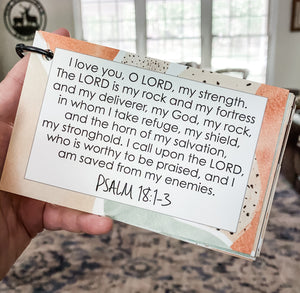 I love you, O LORD, my strength.
The LORD is my rock and my fortress
and my deliverer, my God, my rock,
in whom I take refuge, my shield,
and the horn of my salvation,
my stronghold. I call upon the LORD,
who is worthy to be praised, and I
am saved from my enemies.
PSALM 18:1-3